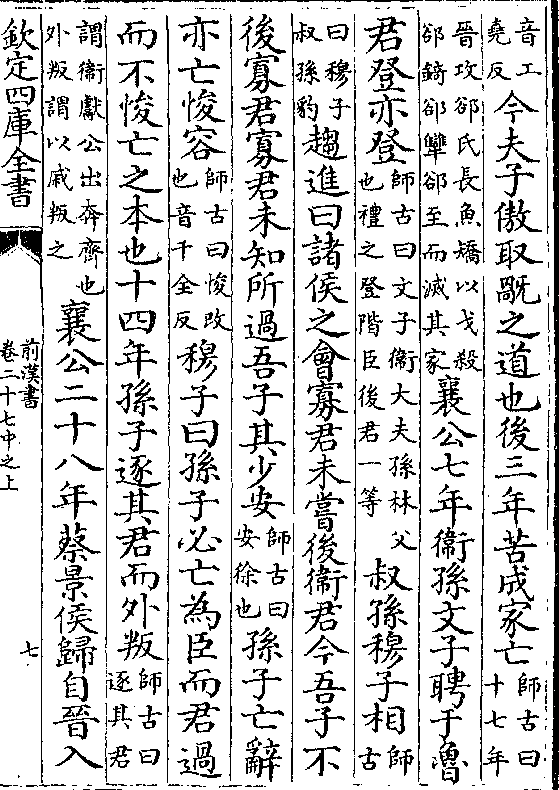 音工堯反今夫子傲取旤之道也後三年苦成家亡師古曰十七年
晉攻郤氏長魚矯以戈殺郤錡郤犨郤至而滅其家襄公七年衛孫文子聘于魯
君登亦登師古曰文子衛大夫孫林父也禮之登階臣後君一等叔孫穆子相師古
曰穆子叔孫豹趨進曰諸侯之會寡君未嘗後衛君今吾子不
後寡君寡君未知所過吾子其少安師古曰安徐也孫子亡辭
亦亡悛容師古曰悛改也音千全反穆子曰孫子必亡為臣而君過
而不悛亡之本也十四年孫子逐其君而外叛師古曰逐其君
謂衛獻公出奔齊也外叛謂以戚叛之襄公二十八年蔡景侯歸自晉入
欽定四庫全書
前漢書
卷二十七中之上
七